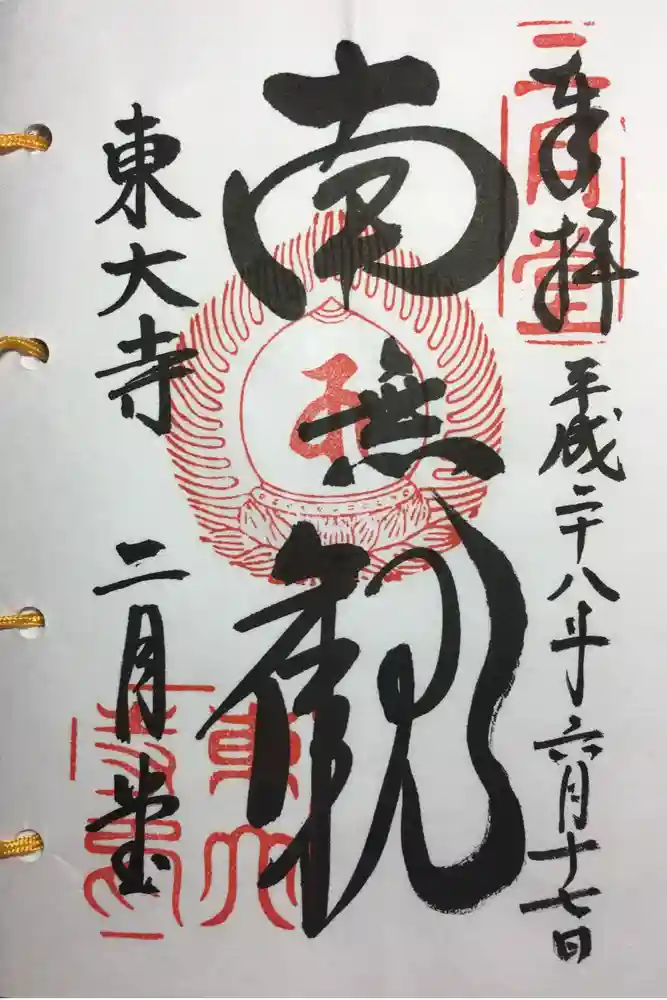 奉拝
平成二十八年六月十七日
南無観
東大寺
二月堂
二月堂